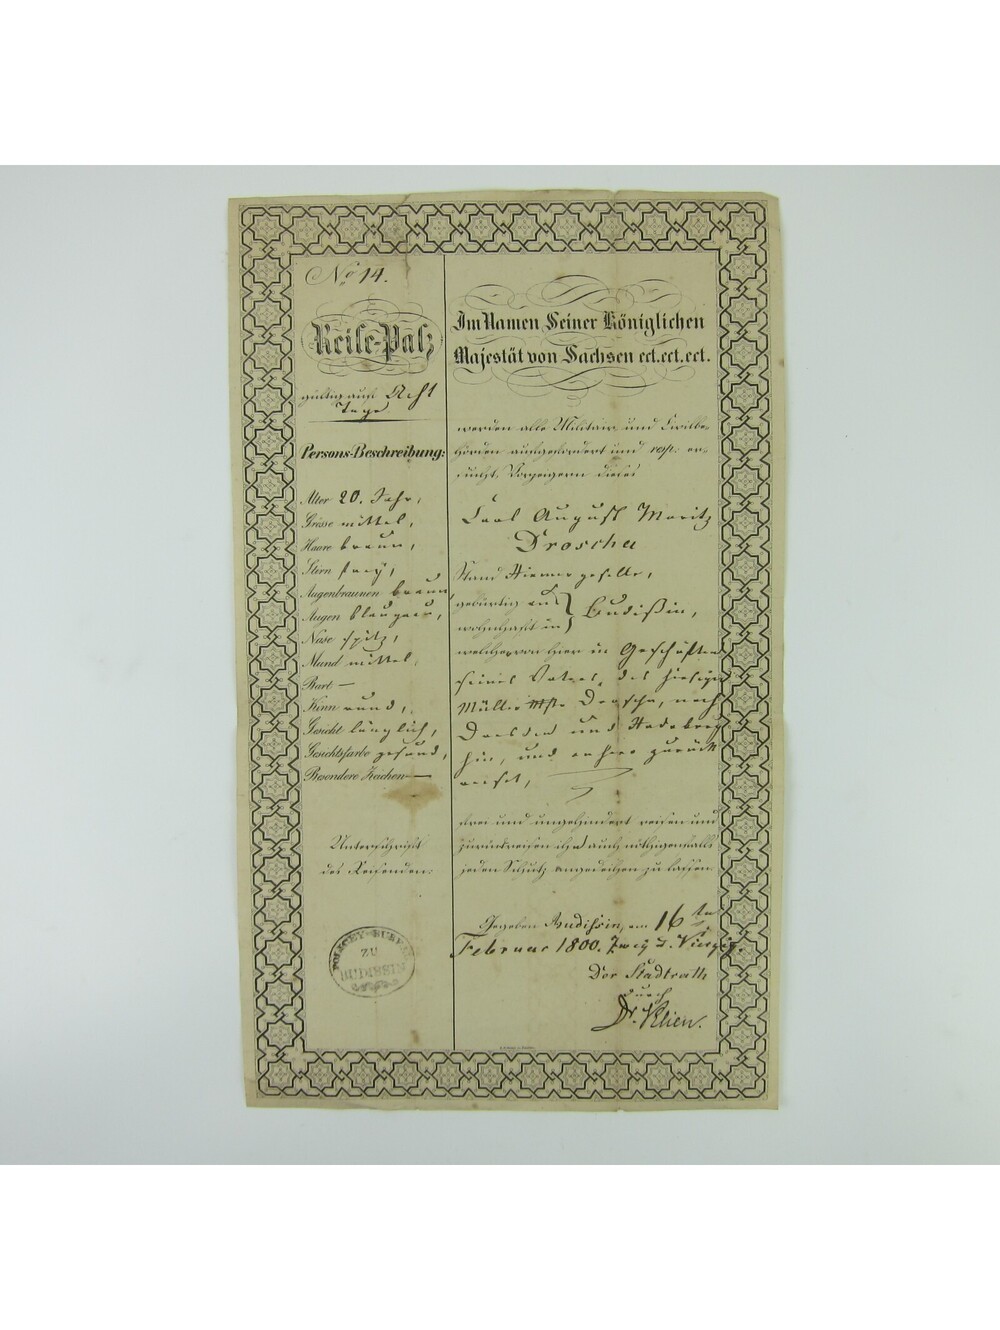 No 14.
Reise-Pass
gültig auf Acht
Tage
Persons-Beschreibung:
Alter 20. Jahr,
Grösse mittel,
Haare braun,
Stirn frey,
Augenbraunen braun,
Augen blaugrau,
Nase spitz,
Mund mittel,
Bart —
Kinn rund,
Gesicht länglich,
Gesichtsfarbe gesund,
Besondere Zeichen —
Unterschrift
des Reisenden:
POLICEY-BUREAU
ZU
BUDISSIN
Im Namen Seiner Königlichen
Majestät von Sachsen ect. ect. ect.
werden alle Militair und Civilbe-
hörden aufgefordert und resp: er-
sucht, Vorzeigern dieses
Carl August Moritz
Droscha
Stand
gebürtig aus } Budißin,
wohnhaft in
welcher von hier in Geschäften
seines Vaters, des hiesigen
Müller Mstr Droscha, nach
Dresden und Radeberg
hin, und anher zurück
reist,
frei und ungehindert reisen und
zurückreisen ihm auch nöthigenfalls
jeden Schutz angedeihen zu lassen.
Gegeben Budissin, am 16ten
Februar 1800. Zwey u. Vierzig.
Der Stadtrath
durch
Dr. Klien.